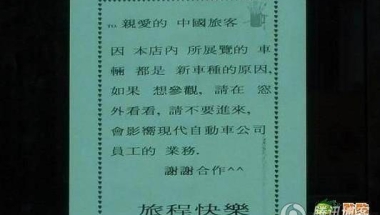 TO 親愛的 中國旅客
因 本店內 所展覽的 車
輛 都是 新車種的原因,
如果 想參觀, 請在 窓
外看看, 請不要進來,
會影響現代自動車公司
員工的 業務.
謝謝合作^^
旅程快樂
腾讯